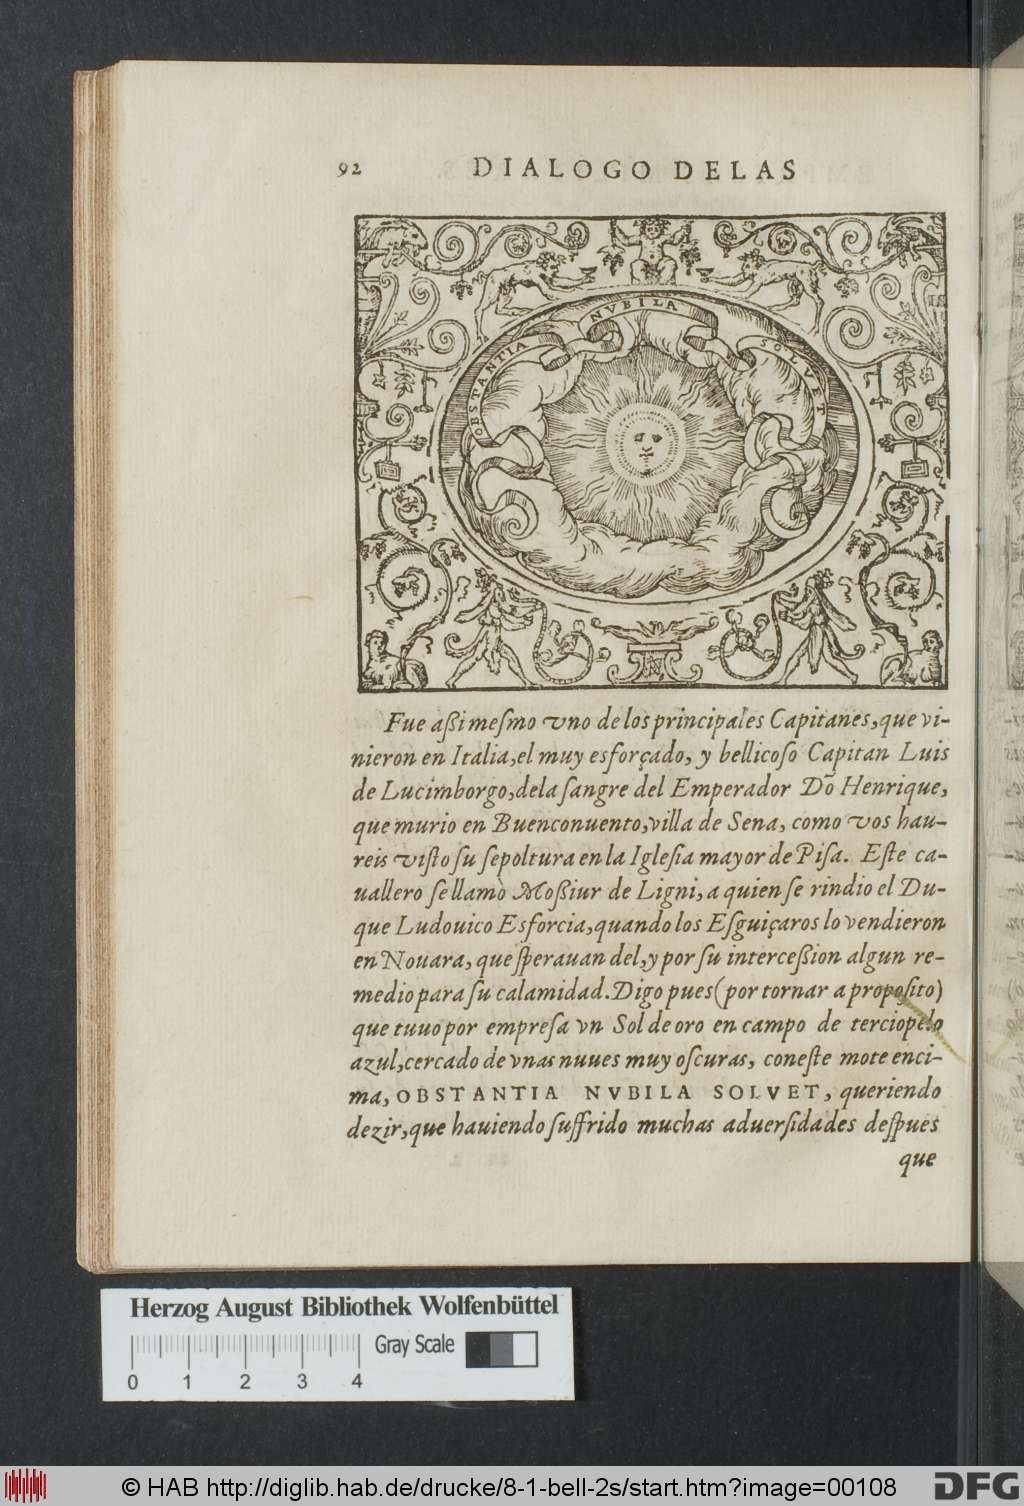 92 DIALOGO DELAS
OBSTANTIA NVBILA SOLVET
Fue aßi mesmo vno de los principales Capitanes, que vi-
nieron en Italia, el muy esforçado, y bellicoso Capitan Luis
de Lucimborgo, dela sangre del Emperador Dõ Henrique,
que murio en Buenconuento, villa de Sena, como vos hau-
reis visto su sepoltura en la Iglesia mayor de Pisa. Este ca-
uallero se llamò Moßiur de Ligni, a quien se rindio el Du-
que Ludouico Esforcia, quando los Esguiçaros lo vendieron
en Nouara, que sperauan del, y por su interceßion algun re-
medio para su calamidad. Digo pues (por tornar a proposito)
que tuuo por empresa vn Sol de oro en campo de terciopelo
azul, cercado de vnas nuues muy oscuras, coneste mote enci-
ma, OBSTANTIA NVBILA SOLVET, queriendo
dezir, que hauiendo suffrido muchas aduersidades despues
que
Herzog August Bibliothek Wolfenbüttel
Gray Scale
0 1 2 3 4
© HAB http://diglib.hab.de/drucke/8-1-bell-2s/start.htm?image=00108
DFG